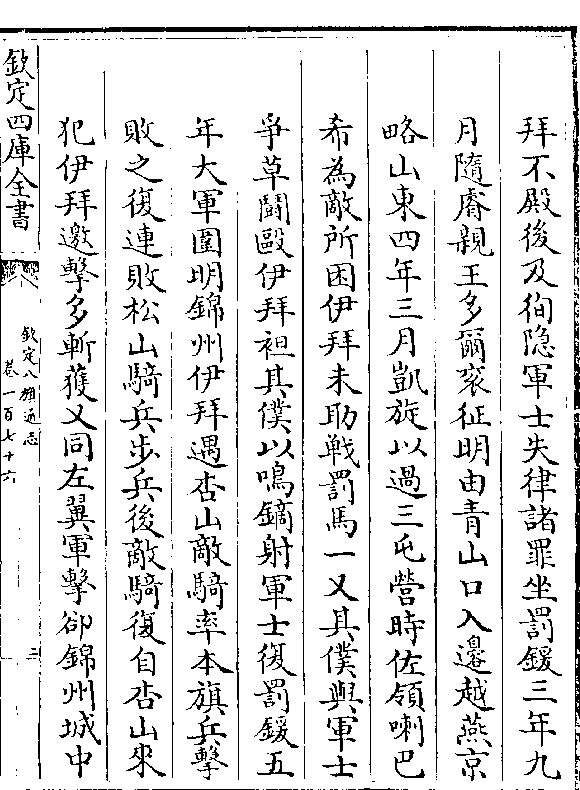 拜不殿後及徇隐軍士失律諸罪坐罰鍰三年九
月隨睿親王多爾衮征明由青山口入邉越燕京
略山東四年三月凱旋以過三屯營時佐領喇巴
希為敵所困伊拜未助戰罰馬一又其僕與軍士
爭草鬪毆伊拜袒其僕以鳴鏑射軍士復罰鍰五
年大軍圍明錦州伊拜遇杏山敵騎率本旗兵擊
敗之復連敗松山騎兵步兵後敵騎復自杏山來
犯伊拜邀擊多斬獲又同左翼軍擊卻錦州城中
欽定四庫全書
欽定八旗通志
卷一百七十六
三